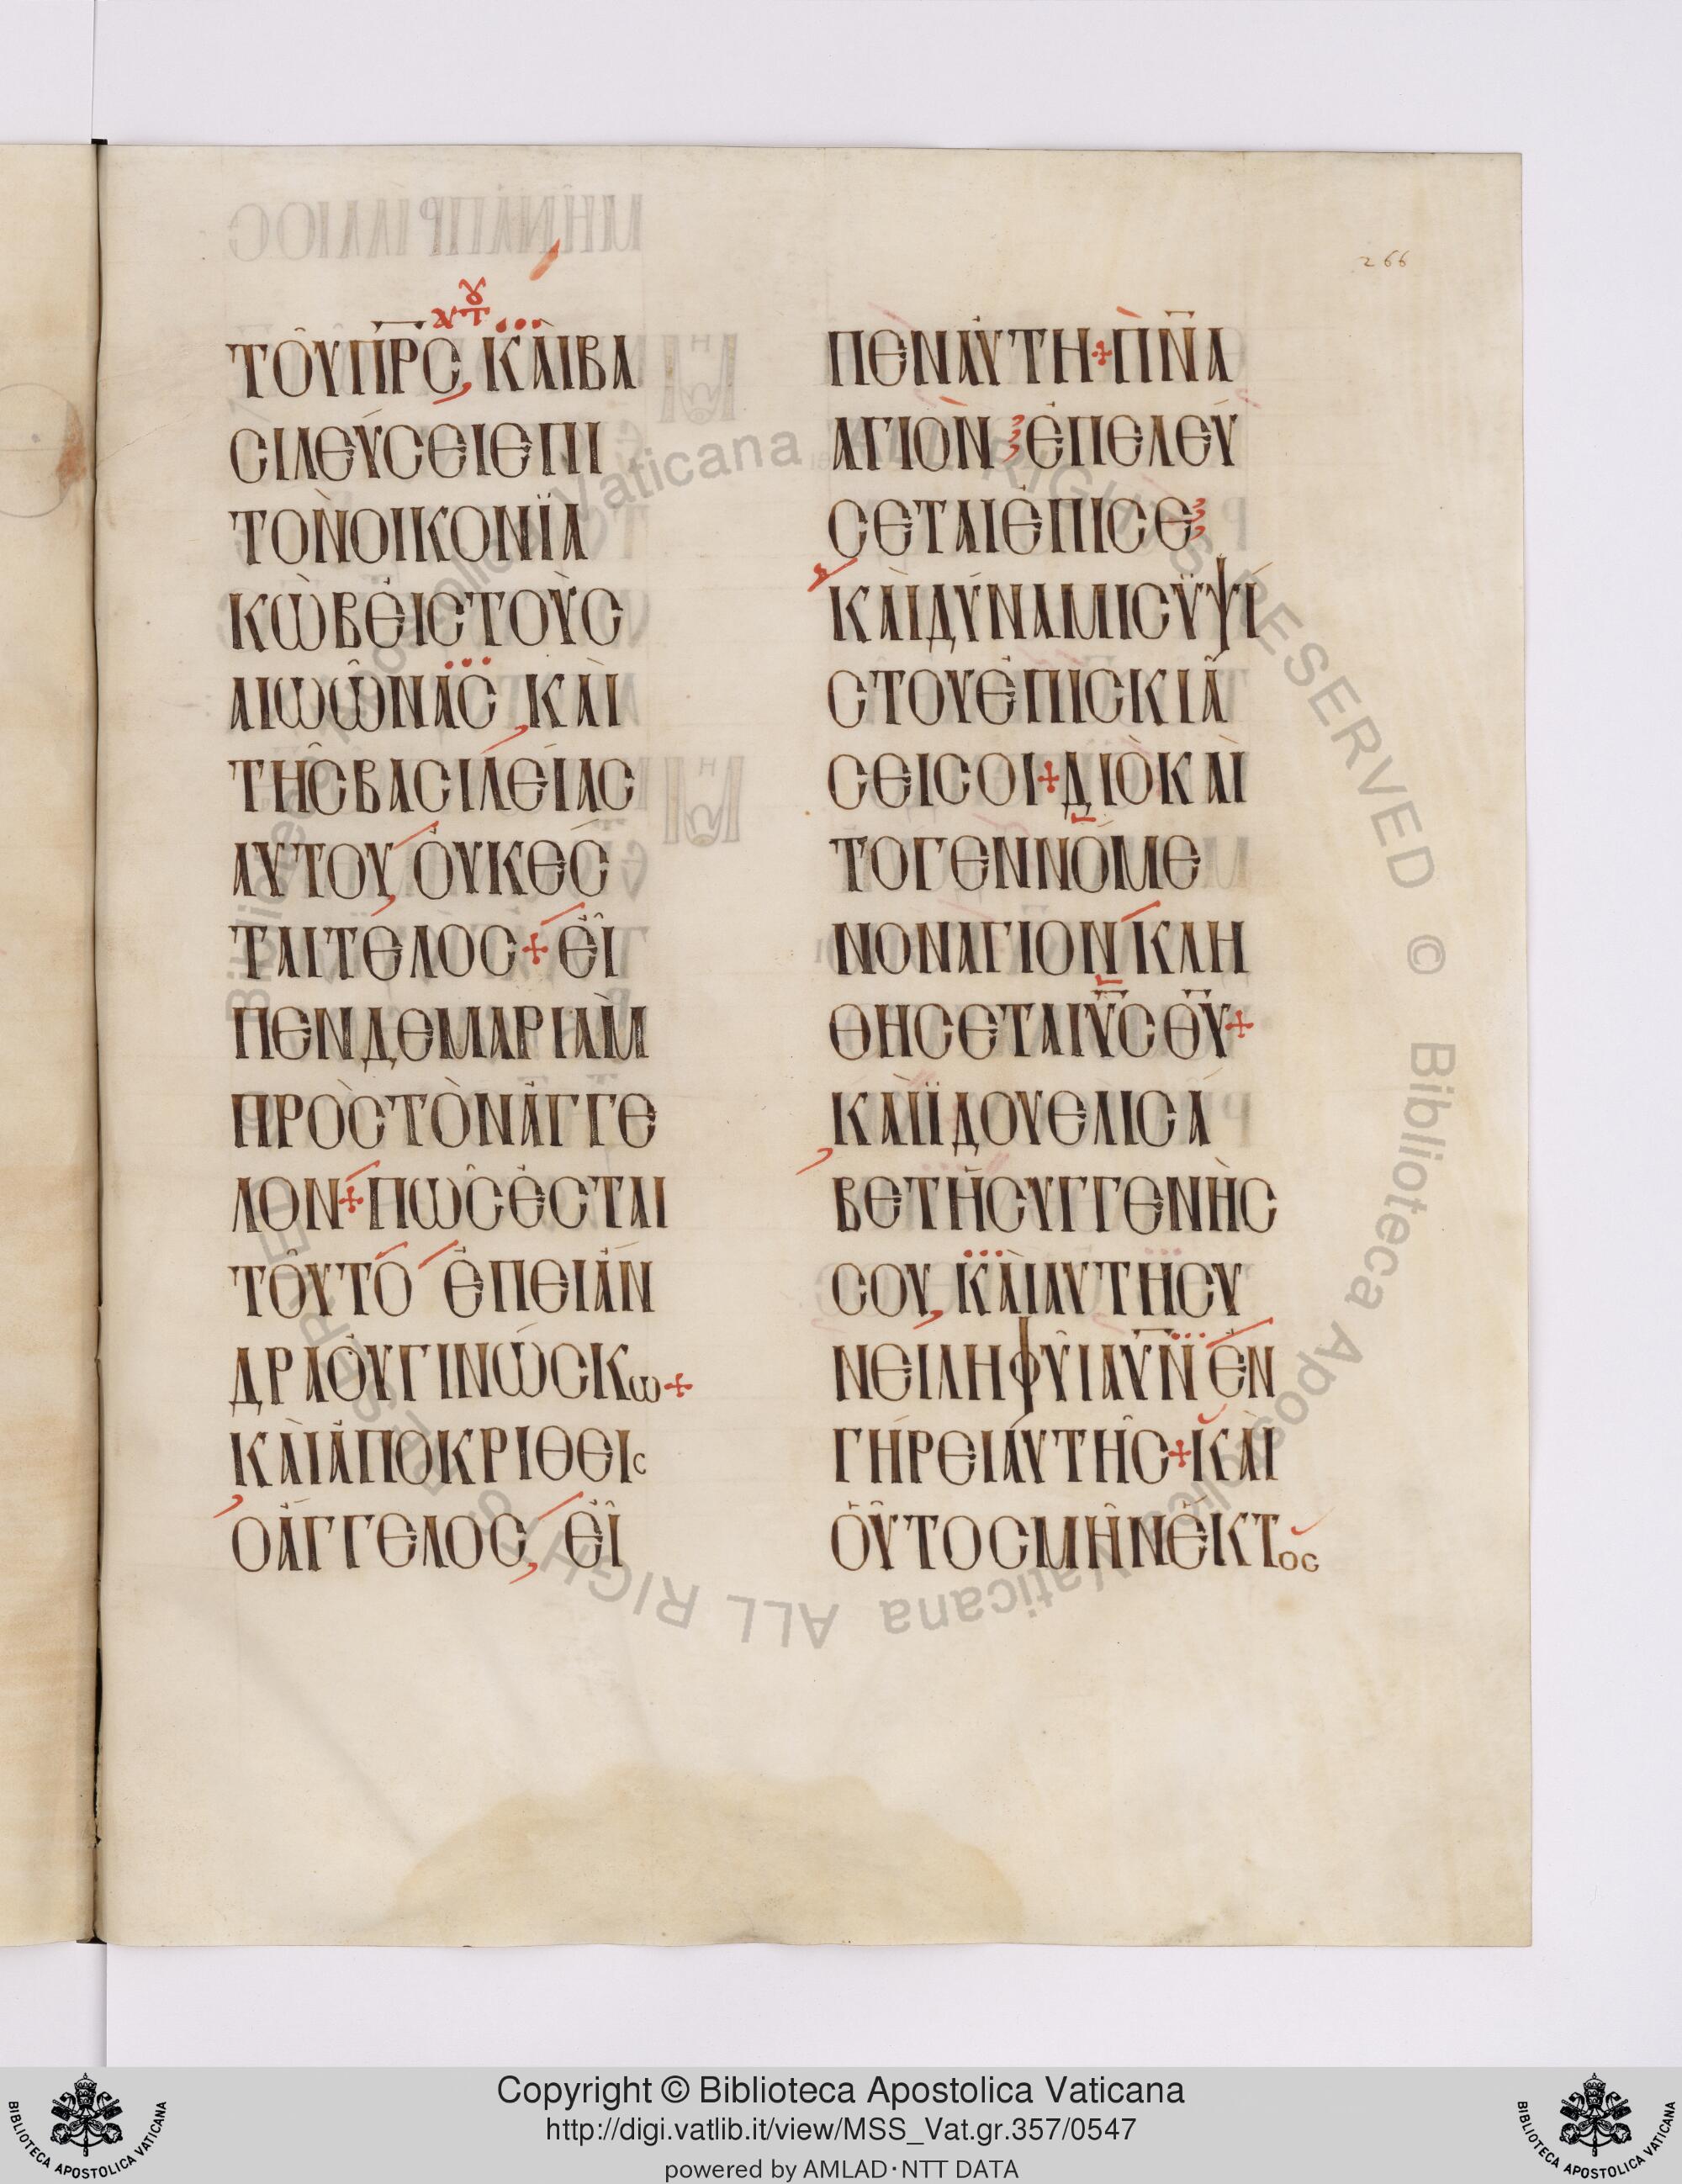 266
ΤΟΥΠΡϹ ΚΑΙΒΑ
ϹΙΛΕΥϹΕΙΕΠΙ
ΤΟΝΟΙΚΟΝΪΑ
ΚΩΒΕΙϹΤΟΥϹ
ΑΙΩΩΝΑϹ ΚΑΙ
ΤΗϹΒΑϹΙΛΕΙΑϹ
ΑΥΤΟΥ ΟΥΚΕϹ
ΤΑΙΤΕΛΟϹ + ΕΙ
ΠΕΝΔΕΜΑΡΙΑΜ
ΠΡΟϹΤΟΝΑΓΓΕ
ΛΟΝ + ΠΩϹΕϹΤΑΙ
ΤΟΥΤΟ ΕΠΕΙΑΝ
ΔΡΑΟΥΓΙΝΩϹΚω +
ΚΑΙΑΠΟΚΡΙΘΕΙϲ
ΟΑΓΓΕΛΟϹ, ΕΙ
ΠΕΝΑΥΤΗ + ΠΝΑ
ΑΓΙΟΝ ΕΠΕΛΕΥ
ϹΕΤΑΙΕΠΙϹΕ
ΚΑΙΔΥΝΑΜΙϹΫΨΙ
ϹΤΟΥΕΠΙϹΚΙΑ
ϹΕΙϹΟΙ + ΔΙΟΚΑΙ
ΤΟΓΕΝΝΟΜΕ
ΝΟΝΑΓΙΟΝΚΛΗ
ΘΗϹΕΤΑΙΥϹΘΥ +
ΚΑΙΪΔΟΥΕΛΙϹΑ
ΒΕΤΗϹΥΓΓΕΝΗϹ
ϹΟΥ, ΚΑΙΑΥΤΗϹΥ
ΝΕΙΛΗΦΥΙΑΥΝ ΕΝ
ΓΗΡΕΙΑΥΤΗϹ + ΚΑΙ
ΟΥΤΟϹΜΗΝΕΚΤοϲ
Copyright © Biblioteca Apostolica Vaticana
http://digi.vatlib.it/view/MSS_Vat.gr.357/0547
powered by AMLAD·NTT DATA
BIBLIOTECA APOSTOLICA VATICANA
BIBLIOTECA APOSTOLICA VATICANA